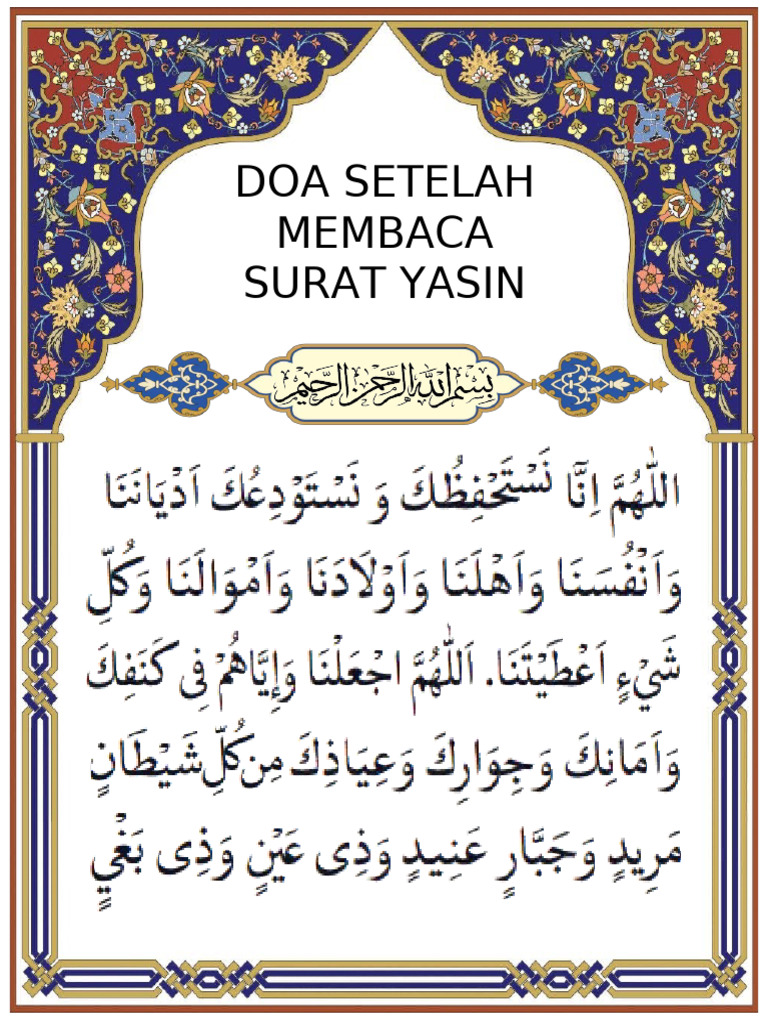 DOA SETELAH
MEMBACA
SURAT YASIN
بِسْمِ اللهِ الرَّحْمٰنِ الرَّحِيْمِ
اَللّٰهُمَّ اِنَّا نَسْتَحْفِظُكَ وَ نَسْتَوْدِعُكَ اَدْيَانَنَا
وَاَنْفُسَنَا وَاَهْلَنَا وَاَوْلَادَنَا وَاَمْوَالَنَا وَكُلِّ
شَيْءٍ اَعْطَيْتَنَا. اَللّٰهُمَّ اجْعَلْنَا وَإِيَّاهُمْ فِى كَنَفِكَ
وَاَمَانِكَ وَجِوَارِكَ وَعِيَاذِكَ مِنْ كُلِّ شَيْطَانٍ
مَرِيدٍ وَجَبَّارٍ عَنِيدٍ وَذِى عَيْنٍ وَذِى بَغْيٍ